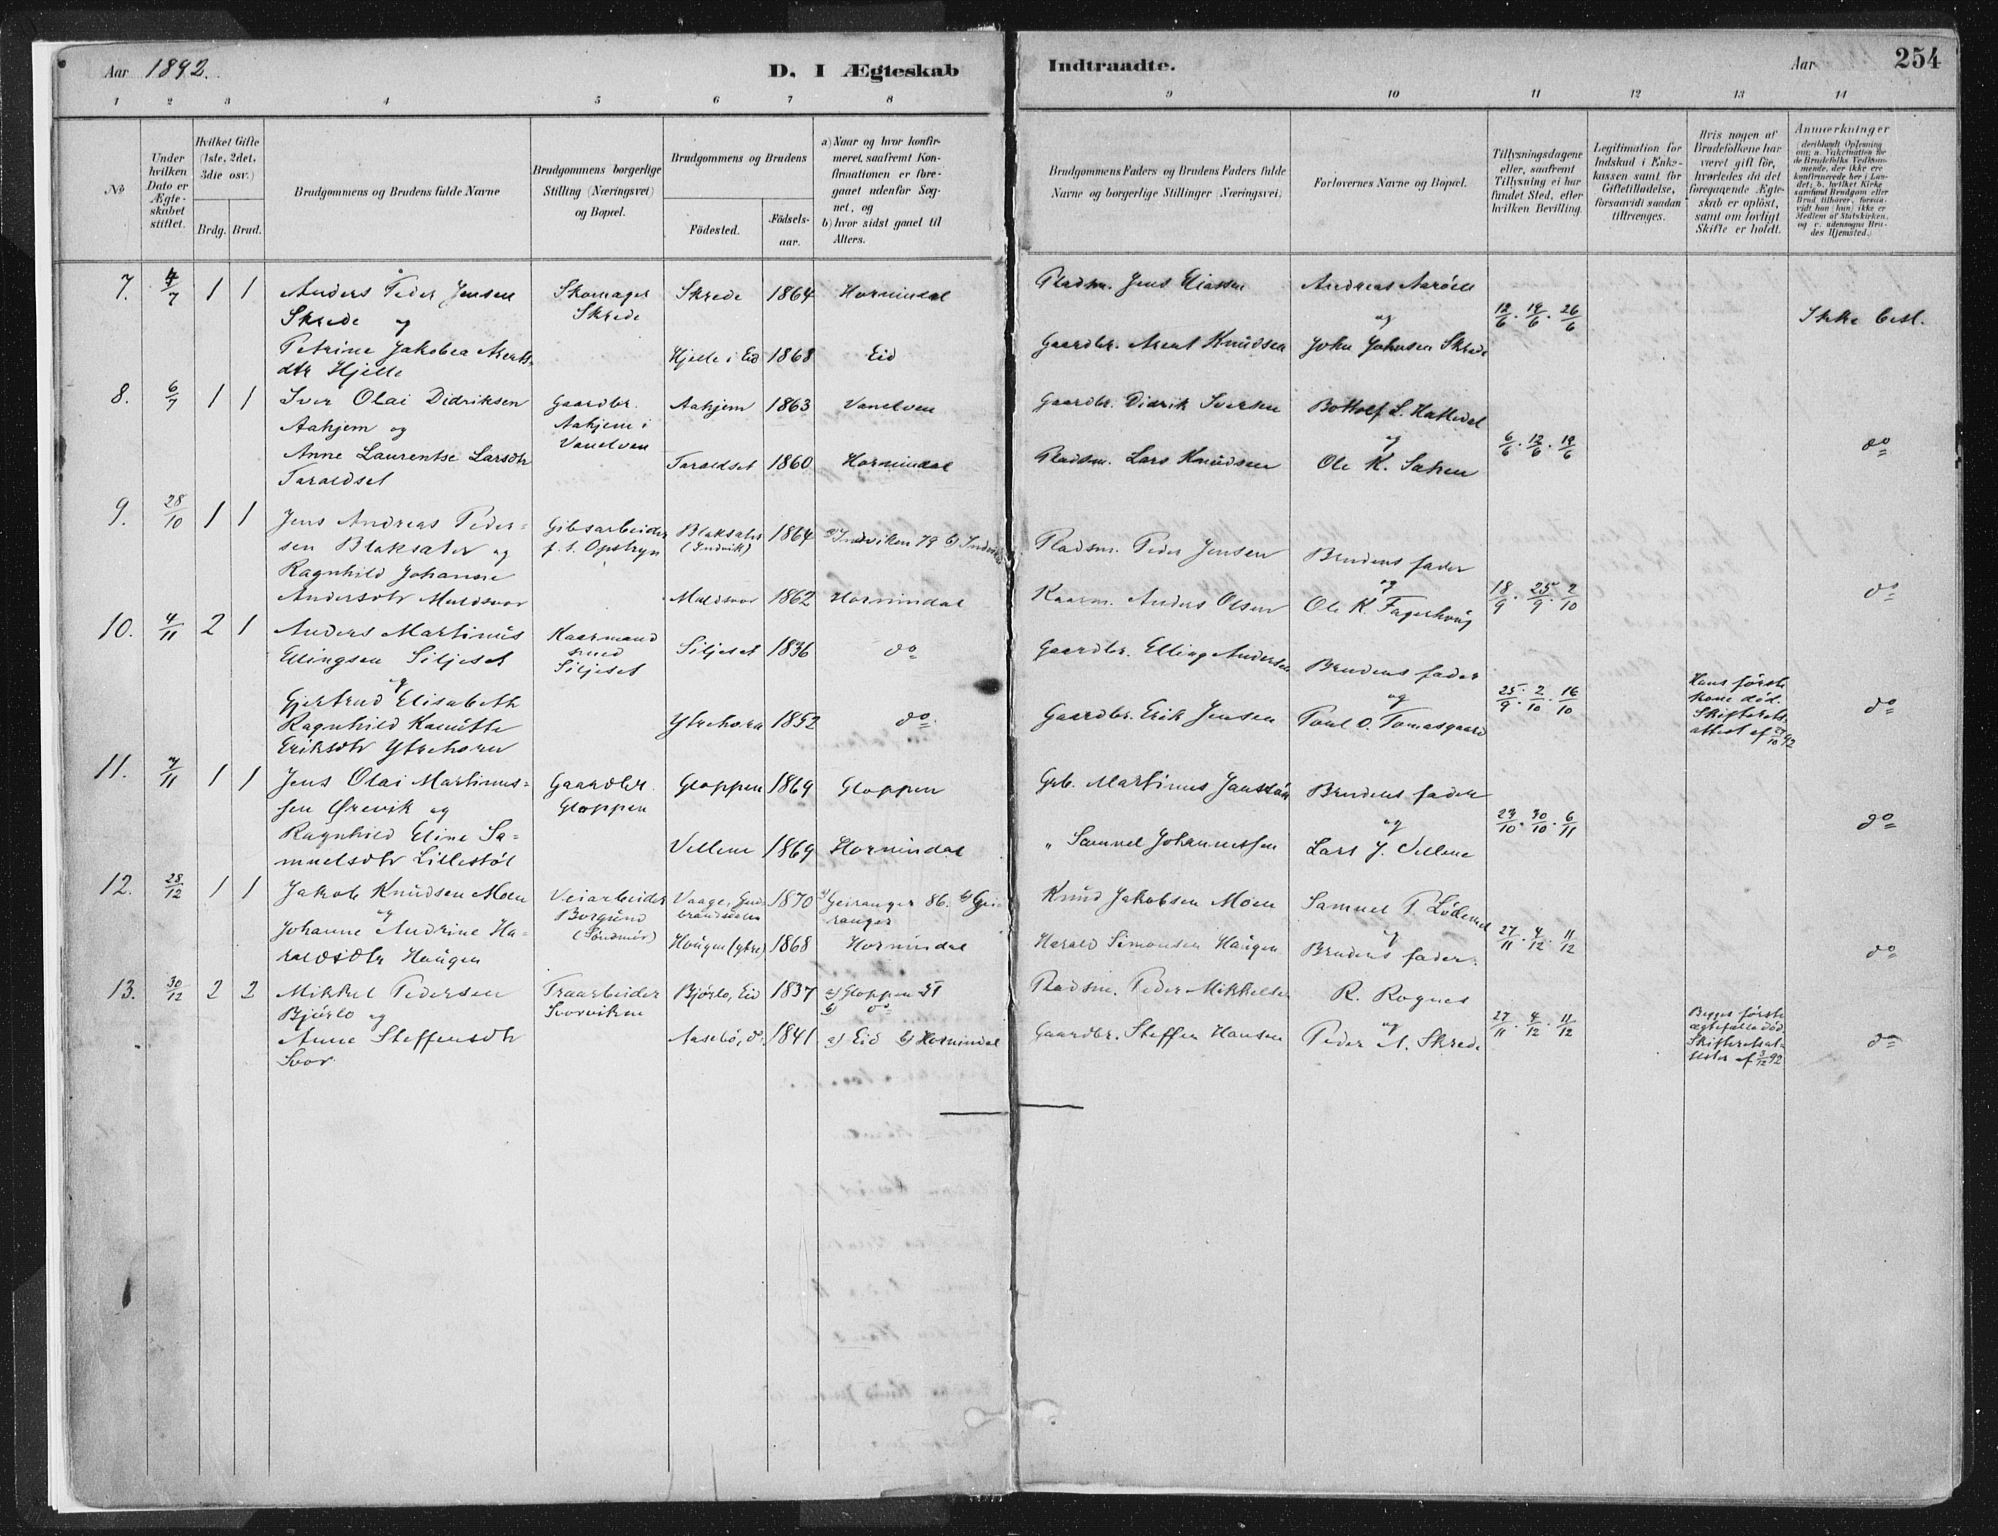 Aar 1892.
D. I Ægteskab
Indtraadte.
Aar
254
1 2 3 4 5 6 7 8 9 10 11 12 13 14
No
Under hvilken Dato er Ægteskabet stiftet.
Hvilket Gifte (1ste, 2det, 3die osv.)
Brdg. Brud.
Brudgommens og Brudens fulde Navne
Brudgommens borgerlige Stilling (Næringsvei) og Bopæl.
Brudgommens og Brudens
Födested.
Födsels-aar.
a) Naar og hvor konfirmeret, saafremt Konfirmationen er foregaaet udenfor Sognet, og
b) hvor sidst gaaet til Alters.
Brudgommens Faders og Brudens Faders fulde Navne og borgerlige Stillinger (Næringsvei.)
Forlovernes Navne og Bopæl.
Tillysningsdagene eller, saafremt Tillysning ei har fundet Sted, efter hvilken Bevilling.
Legitimation for Indskud i Enkekassen samt for Giftetilladelse, forsaavidt saadan tiltrænges.
Hvis nogen af Brudefolkene har været gift før, hvorledes da det foregaaende Ægteskab er oplöst, samt om lovligt Skifte er holdt.
Anmærkninger
7. 4/7 1 1
Anders Peder Jensen
Skrede
og
Petrine Jakobea
Hjelle
Skomager
Skrede
Skrede 1864 Hornindal
Hjelle i Eid 1868 Eid
Pladsm. Jens Eliassen
Gaardbr. Arent Knudsen
Andreas Aaröen
og
John Johnsen Skrede
12/6. 19/6. 26/6
Ikke besl.
8. 6/7 1 1
Iver Olai Didriksen
Aahjem og
Anne Laurentse Larsdtr
Taraldset
Gaardbr.
Aahjem i
Vanelven
Aahjem 1863 Vanelven
Taraldset 1860. Hornindal
Gaardbr. Didrik Iversen
Pladsm. Lars Knudsen
Bottolf L. Hattedal
og
Ole K.
6/6. 12/6. 19/6
do
9. 28/10 1 1
Jens Andreas Peder-
sen Blaksæter og
Ragnhild Johanne
Andersdtr Muldsvor
Gibsarbeider
f. t. Opstryn
Blaksæter
(Indvik)
1864 a) Indviken 79 b)
Muldsvor 1862 Hornindal
Pladsm. Peder Jensen
Kaarm. Anders Olsen
Brudens fader
og
Ole K. Fagerhöug
18/9. 25/9. 2/10
do
10. 4/11 2 1
Anders Martinus
Ellingsen Siljeset
og
Gjertrud Elisabeth
Ragnhild Kanutte
Eriksdtr Ytrehorn
Kaarmand
Siljeset
Siljeset 1836 do
Ytrehorn 1852 do.
Gaardbr. Elling Andersen
Gaardbr. Erik Jensen
Brudens fader
og
Paul O. Tomasgaard
25/9. 2/10. 16/10
Hans förste
kone död.
Skifterets
attest af 27/10 92
do
11. 7/11 1 1
Jens Olai Martinus-
sen Ørevik og
Ragnhild Eline Sa-
muelsdtr Lillestöl
Gaardbr.
Gloppen
Gloppen 1869 Gloppen
Vellene 1869 Hornindal
Grb. Martinus Jansson
" Samuel Johannessen
Brudens fader
og
Lars J. Vellene
23/10. 30/10. 6/11
do
12. 28/12 1 1
Jakob Knudsen Moen
og
Johanne Andrine Ha-
raldsdtr Haugen
Veiarbeider
Borgund
(Söndmör)
Vaage, Gud-
brandsdalen
1870 a) Geiranger 86. b) Gei-
ranger
Haugen (ytre) 1868 Hornindal
Knud Jakobsen Moen
Harald Simonsen Haugen
Samuel P. Lödemel
og
Brudens fader.
27/11. 4/12. 11/12
do
13. 30/12 2 2
Mikkel Pedersen
Bjørlo og
Anne Steffensdtr
Svor
Træarbeider
Svorviken
Bjørlo, Eid 1837 a) Gloppen 51
b) do
Aasebö, do. 1841 a) Eid b) Hornindal
Pladsm. Peder Mikkelsen
Gaardbr. Steffen Hansen
R. Rognes
og
Peder A. Skrede
27/11. 4/12. 11/12
Begges förste
ægtefælle död.
af 3/12 92
do